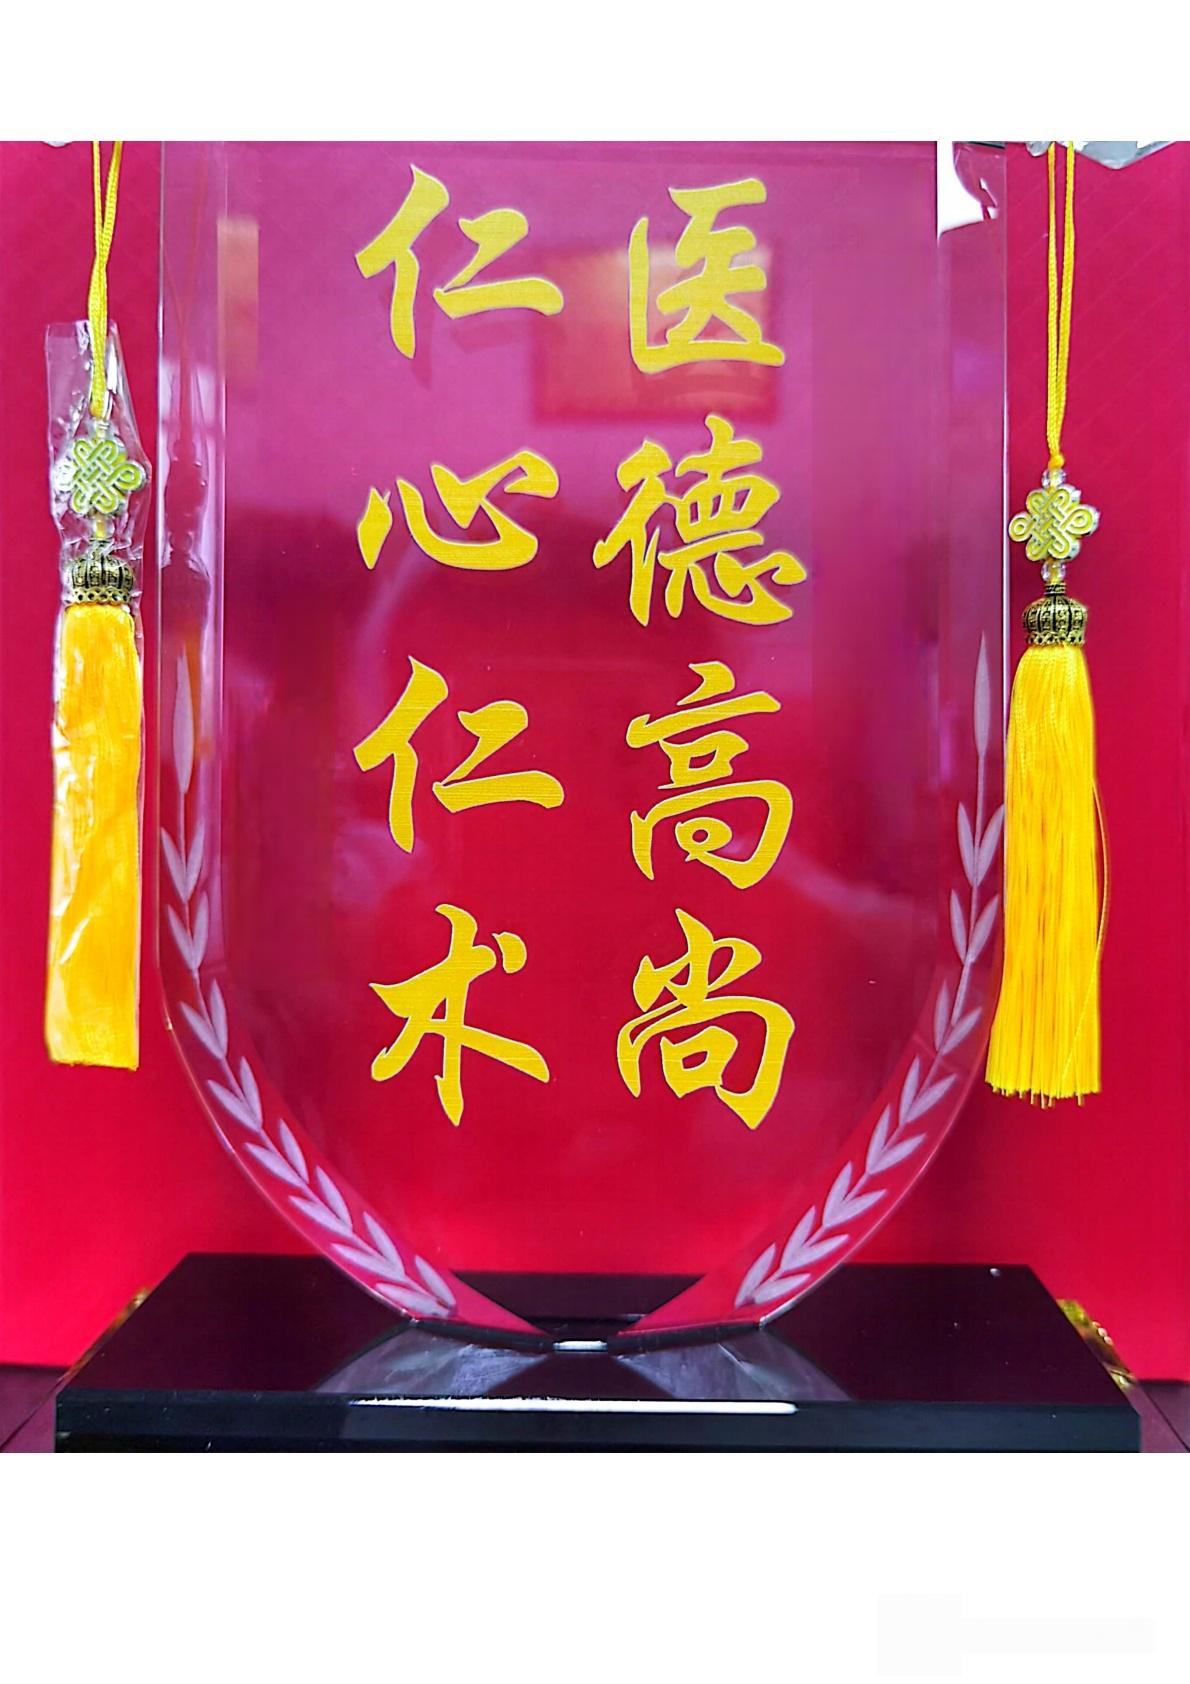 医德高尚
仁心仁术